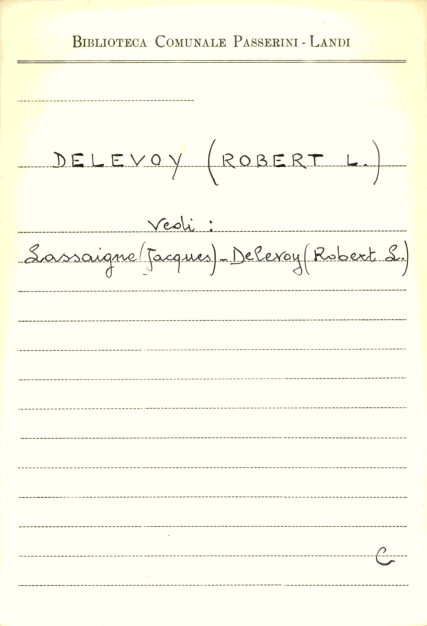 BIBLIOTECA COMUNALE PASSERINI - LANDI
DELEVOY (ROBERT L.)
Vedi :
Lassaigne (Jacques) - Delevoy (Robert L.)
C